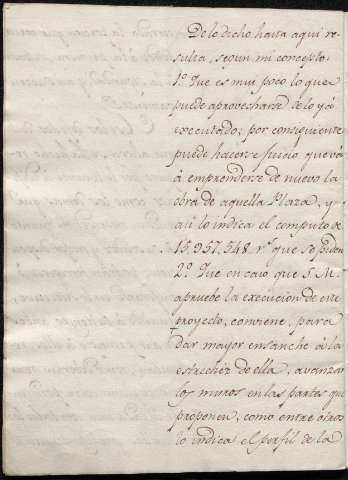 De lo dicho hasta aqui re-
sulta, segun mi concepto.
1.º Que es mui poco lo que
puede aprovecharse de lo yá
executado, por consiguiente
puede hacerse Juicio que vá
á emprenderse de nuevo la
obra de aquella Plaza, y
asi lo indica el computo de
15.957.548. r.s que se piden
2.º Que en caso que S. M.
apruebe la execucion de este
proyecto, conviene, para
dar mayor ensanche á la
estrechez de ella, avanzar
los muros en las partes que
proponen, como entre otros
lo indica el perfil de la